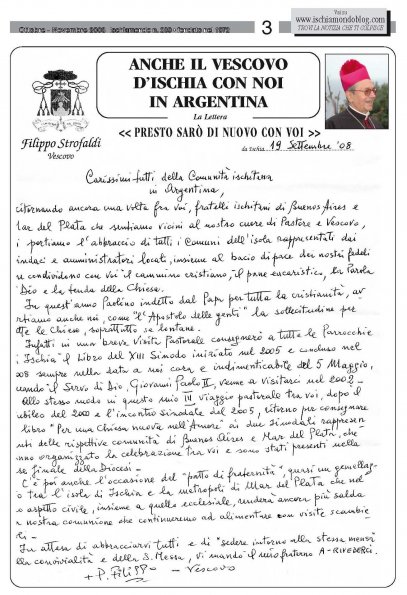 Ottobre - Novembre 2008
3
Visita
www.ischiamondoblog.com
TROVI LA NOTIZIA CHE TI COLPISCE
ANCHE IL VESCOVO
D'ISCHIA CON NOI
IN ARGENTINA
La Lettera
<< PRESTO SARÒ DI NUOVO CON VOI >>
Filippo Strofaldi
Vescovo
da Ischia 19 Settembre '08
Carissimi tutti della Comunità ischitana
in Argentina,
ritornando ancora una volta fra voi, fratelli ischitani di Buenos Aires e
Mar del Plata che sentiamo vicini al nostro cuore di Pastore e Vescovo,
i portiamo l'abbraccio di tutti i Comuni dell'isola rappresentati dai
indaci e amministratori locali, insieme al bacio di pace dei nostri fedeli
re condividono con voi il cammino cristiano, il pane eucaristico, la Parola
Dio e la tenda della Chiesa.
In quest'anno Paolino indetto dal Papa per tutta la cristianità, av
rtiamo anche noi, come "l'Apostolo delle genti" la sollecitudine per
tte le Chiese, soprattutto se lontane.
Infatti in una breve Visita Pastorale consegnerò a tutte le Parrocchie
Ischia il Libro del XIII Sinodo iniziato nel 2005 e concluso nel
008 sempre nella data a noi cara e indimenticabile del 5 Maggio,
uando il Servo di Dio, Giovanni Paolo II, venne a visitarci nel 2002.
Allo stesso modo in questo mio IV viaggio pastorale tra voi, dopo il
iubileo del 2000 e l'incontro Sinodale del 2005, ritorno per consegnare
libro "Per una Chiesa nuova nell'Amore" ai due Sinodali rappresen
nti delle rispettive comunità di Buenos Aires e Mar del Plata, che
nno organizzato la celebrazione tra voi e sono stati presenti nella
se finale della Diocesi -
C'è poi anche l'occasione del "patto di fraternità", quasi un gemellag
o tra l'isola di Ischia e la metropoli di Mar del Plata che nel
o aspetto civile, insieme a quello ecclesiale, renderà ancora più salda
a nostra comunione che continueremo ad alimentare con visite scambie
li -
In attesa di abbracciarvi tutti e di "sedere intorno alla stessa mensa"
lla convivialità e della S. Messa, vi mando il mio fraterno A-RIVEDERCI.
+ P. Filippo - Vescovo